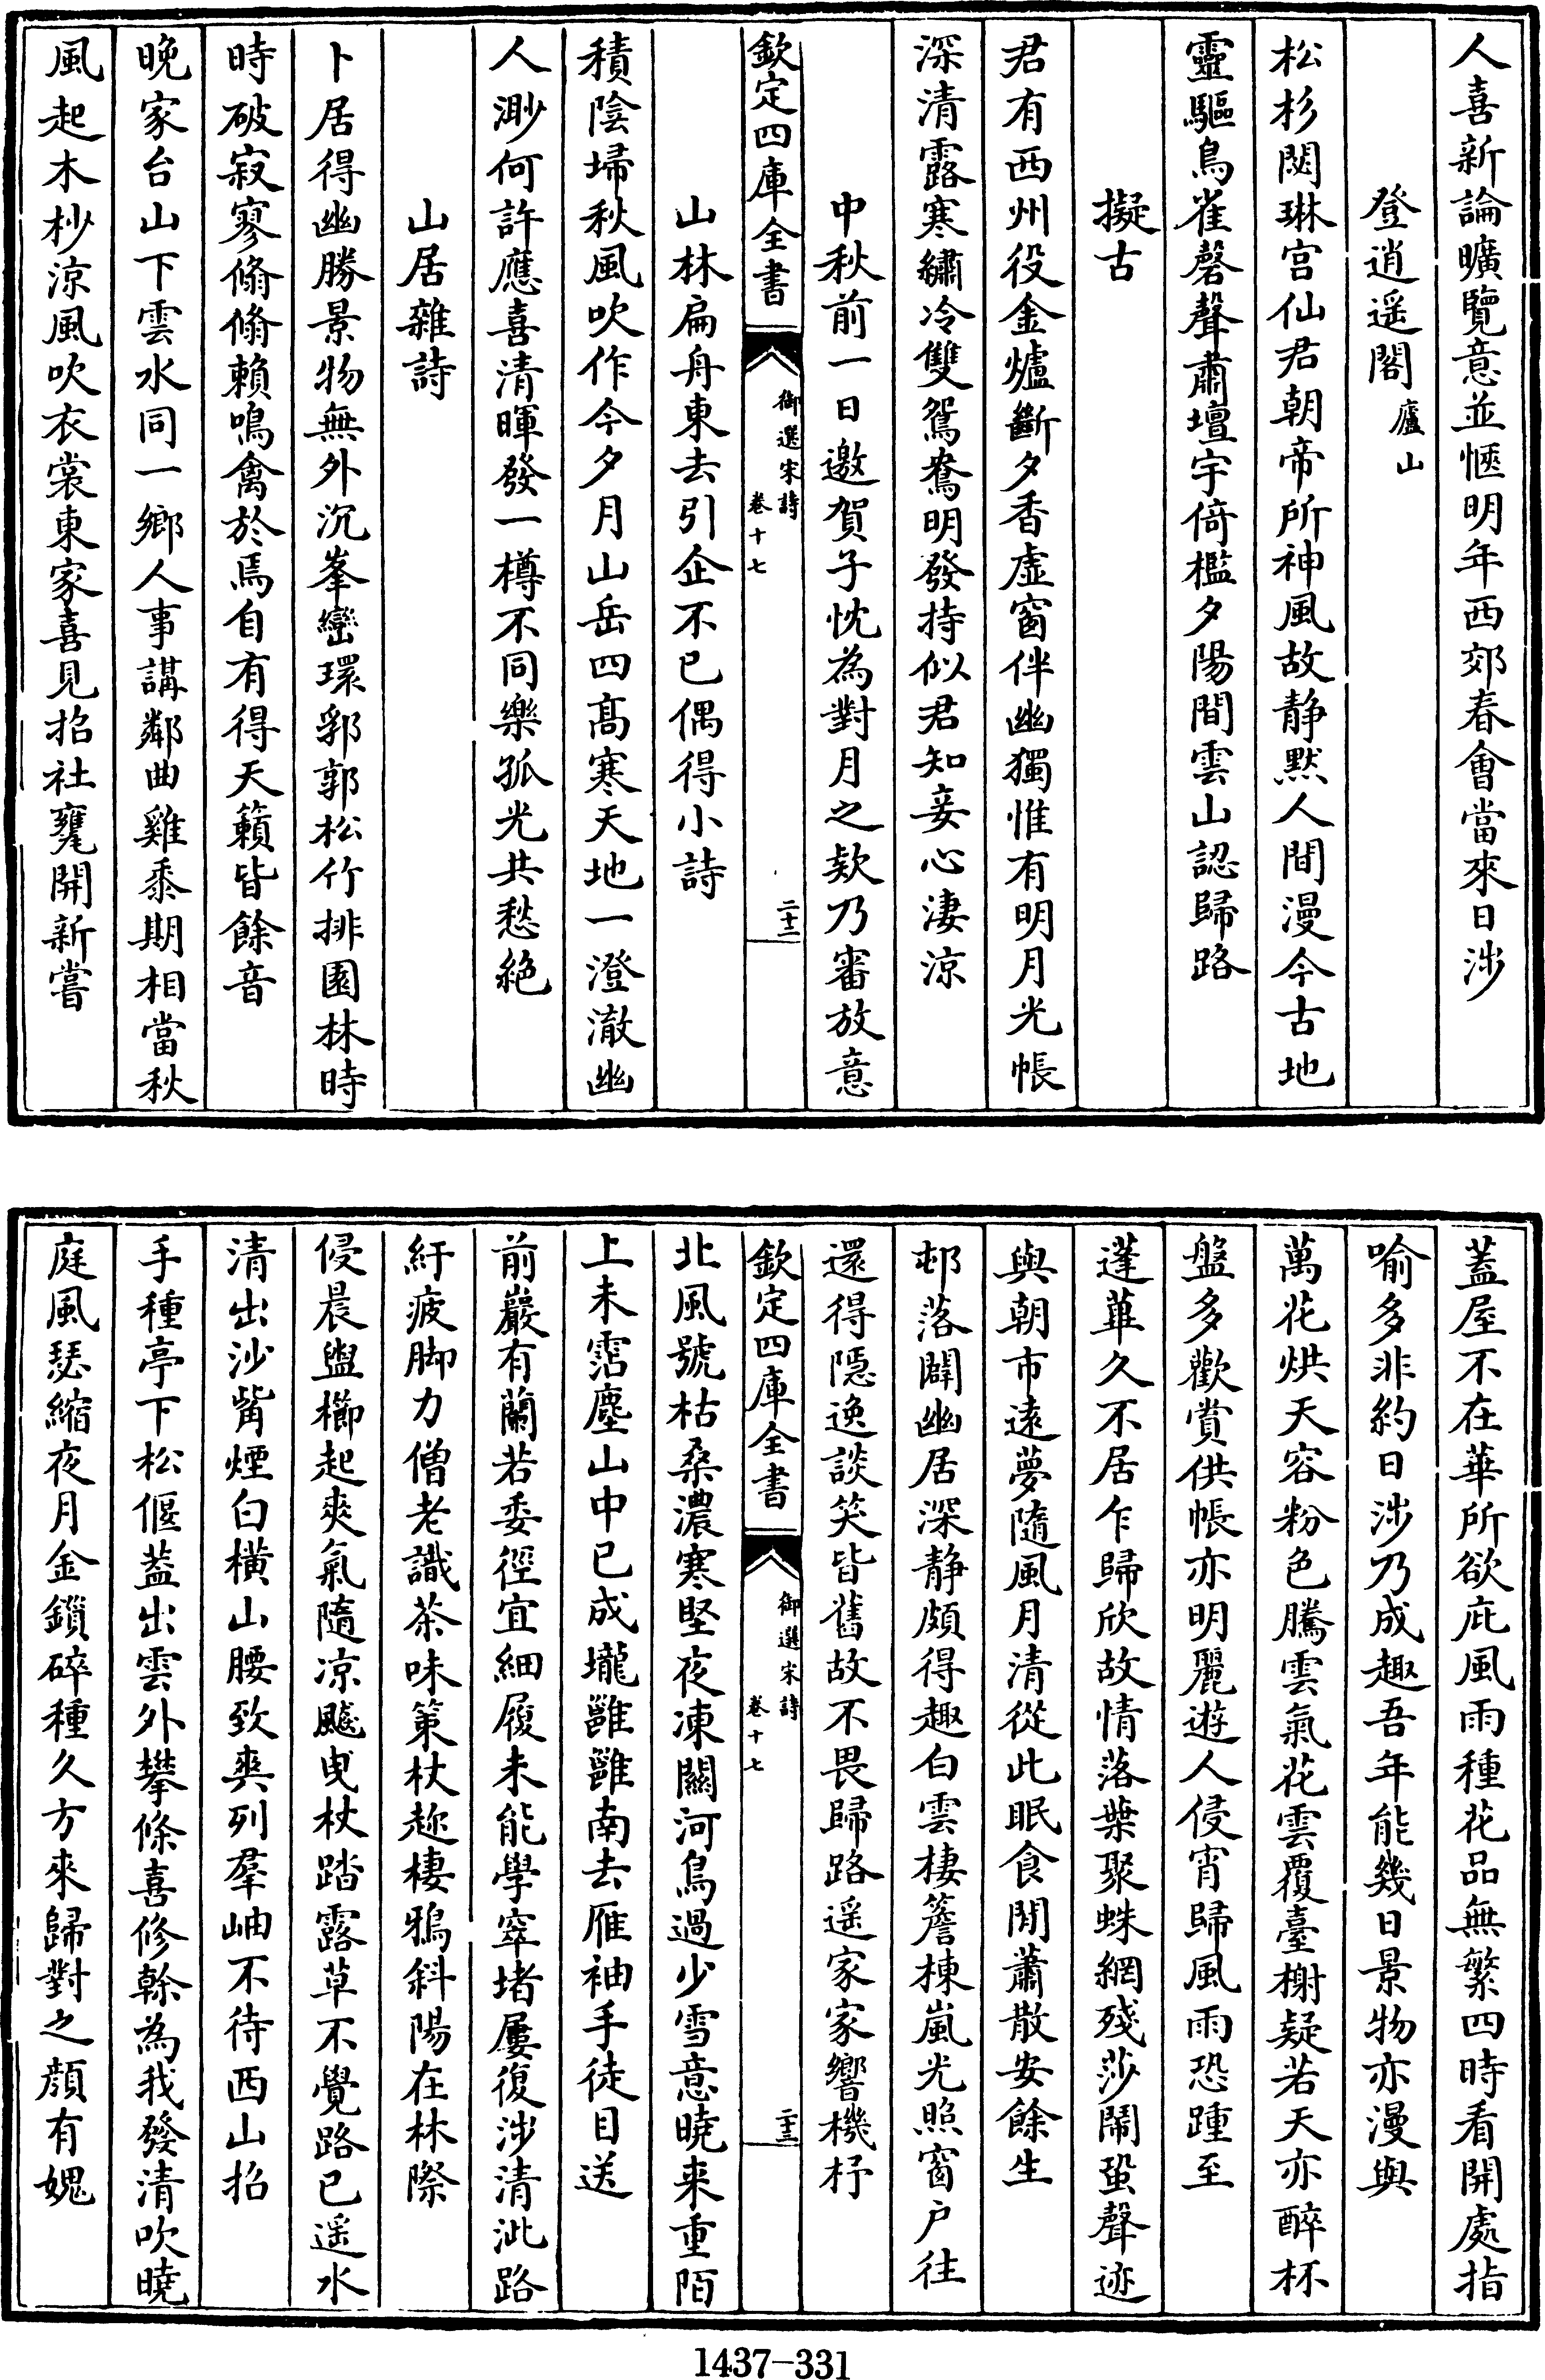 人喜新論曠覽意並愜明年西郊春會當來日涉
登逍遥閣廬山
松杉閟琳宫仙君朝帝所神風故静默人間漫今古地
靈驅鳥雀磬聲肅壇宇倚檻夕陽間雲山認歸路
擬古
君有西州役金爐斷夕香虚窗伴幽獨惟有明月光帳
深清露寒繡冷雙鴛鴦明發持似君知妾心淒涼
中秋前一日邀賀子忱為對月之欵乃審放意
欽定四庫全書
御選宋詩
卷十七
二十二
山林扁舟東去引企不已偶得小詩
積陰埽秋風吹作今夕月山岳四髙寒天地一澄澈幽
人渺何許應喜清暉發一樽不同樂孤光共愁絶
山居雜詩
卜居得幽勝景物無外沉峯巒環郛郭松竹排園林時
時破寂寥翛翛賴鳴禽於焉自有得天籟皆餘音
晚家台山下雲水同一鄉人事講鄰曲雞黍期相當秋
風起木杪涼風吹衣裳東家喜見招社甕開新嘗
蓋屋不在華所欲庇風雨種花品無繁四時看開處指
喻多非約日涉乃成趣吾年能幾日景物亦漫與
萬花烘天容粉色騰雲氣花雲覆臺榭疑若天亦醉杯
盤多歡賞供帳亦明麗遊人侵宵歸風雨恐踵至
蓬蓽久不居乍歸欣故情落葉聚蛛網殘莎鬧蛩聲迹
與朝市逺夢隨風月清從此眠食閒蕭散安餘生
邨落闢幽居深静頗得趣白雲棲簷棟嵐光照窗户往
還得隠逸談笑皆舊故不畏歸路遥家家響機杼
欽定四庫全書
御選宋詩
卷十七
二十三
北風號枯桑濃寒堅夜凍關河鳥過少雪意曉来重陌
上未霑塵山中已成壠雝雝南去雁袖手徒目送
前巖有蘭若委徑宜細履未能學窣堵屢復涉清泚路
紆疲脚力僧老識茶味策杖趂棲鴉斜陽在林際
侵晨盥櫛起爽氣隨凉飈曳杖踏露草不覺路已遥水
清出沙觜煙白横山腰致爽列羣岫不待西山招
手種亭下松偃葢出雲外攀條喜修榦為我發清吹曉
庭風瑟縮夜月金鎖碎種久方來歸對之顔有媿
1437-331